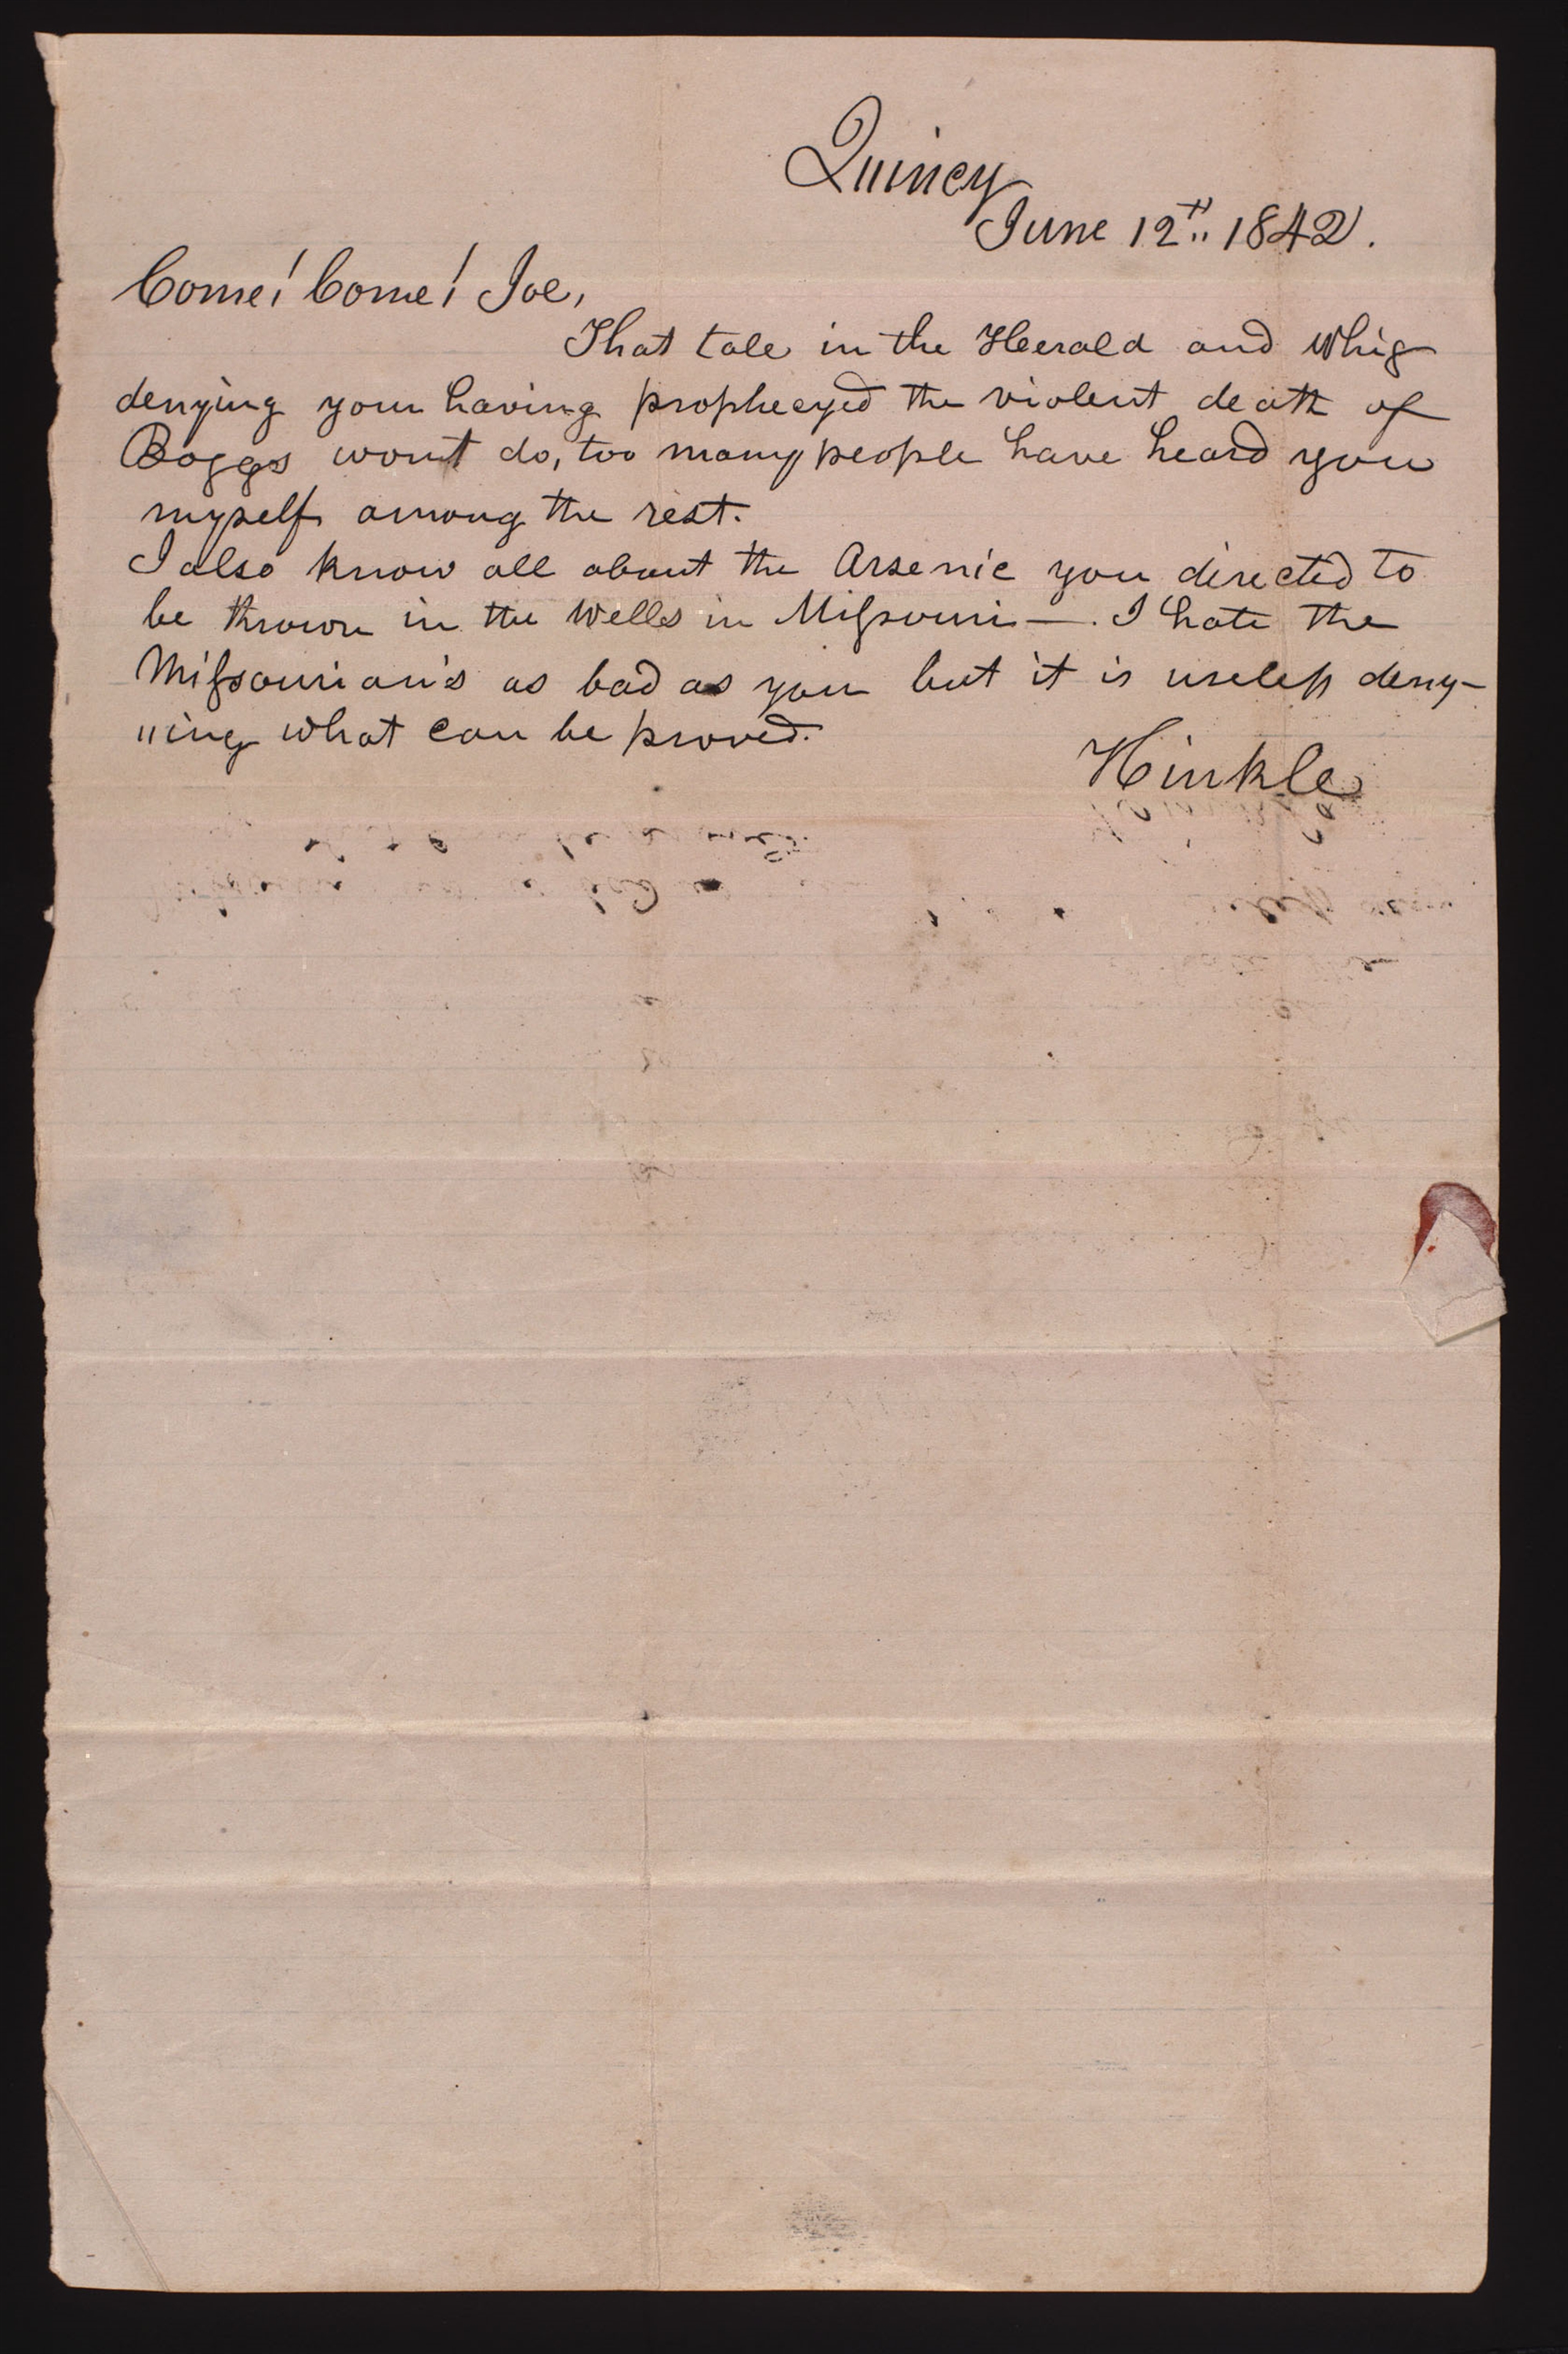 Quincy
June 12th 1842.
Come! Come! Joe,
That tale in the Herald and Whig
denying your having prophecyed the violent death of
Boggs wont do, too many people have heard you
myself among the rest.
I also know all about the Arsenic you directed to
be thrown in the Wells in Missouri —. I hate the
Missourian's as bad as you but it is useless deny-
"ing what can be proved.
Hinkle